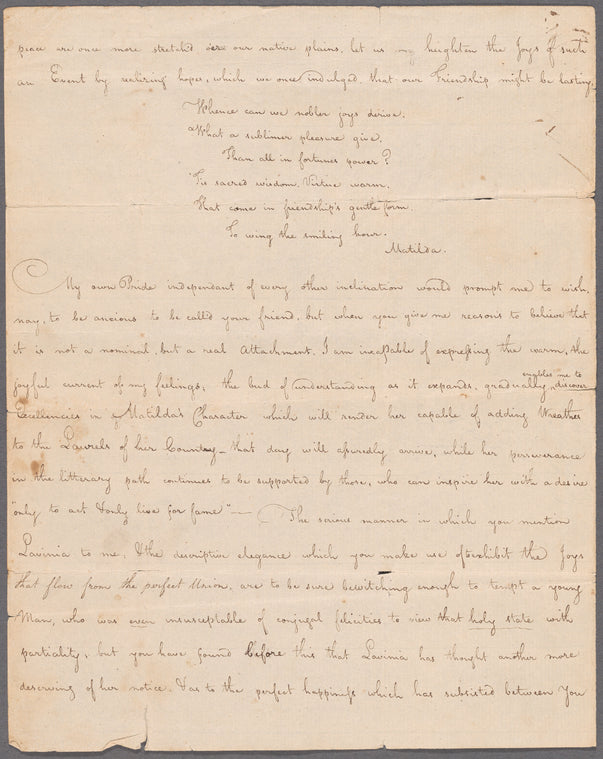 peace are once more stretch'd o'er our native plains, let us heighten the Joys of such
an Event by realizing hopes, which we once indulged that our Friendship might be lasting,
Whence can we nobler joys derive.
What a sublimer pleasure give,
Than all in fortunes power?
Tis sacred wisdom. Virtue warm.
That come in friendship's gentle form.
To wing the smiling hour.
Matilda.
My own Pride independant of every other inclination would prompt me to wish,
nay, to be ancious to be call'd your friend, but when you give me reasons to believe that
it is not a nominal, but a real Attachment. I am incapable of expressing the warm, the
joyful current of my feelings; the bud of understanding as it expands, gradually enables me to discover
Excellencies in Matilda's Character which will render her capable of adding Wreathes
to the Laurels of her Country – that day will assuredly arrive, while her perseverance
in the litterary path continues to be supported by those, who can inspire her with a desire
"only to act & only live for fame" — The serious manner in which you mention
Lavinia to me, & the descriptive elegance which you make use of to exhibit the Joys
that flow from the perfect Union, are to be sure bewitching enough to tempt a young
Man, who was even insusceptable of conjugal felicities to view that holy state with
partiality, but you have found before this that Lavinia has thought another more
deserving of her notice. & as to the perfect happiness which has subsisted between You